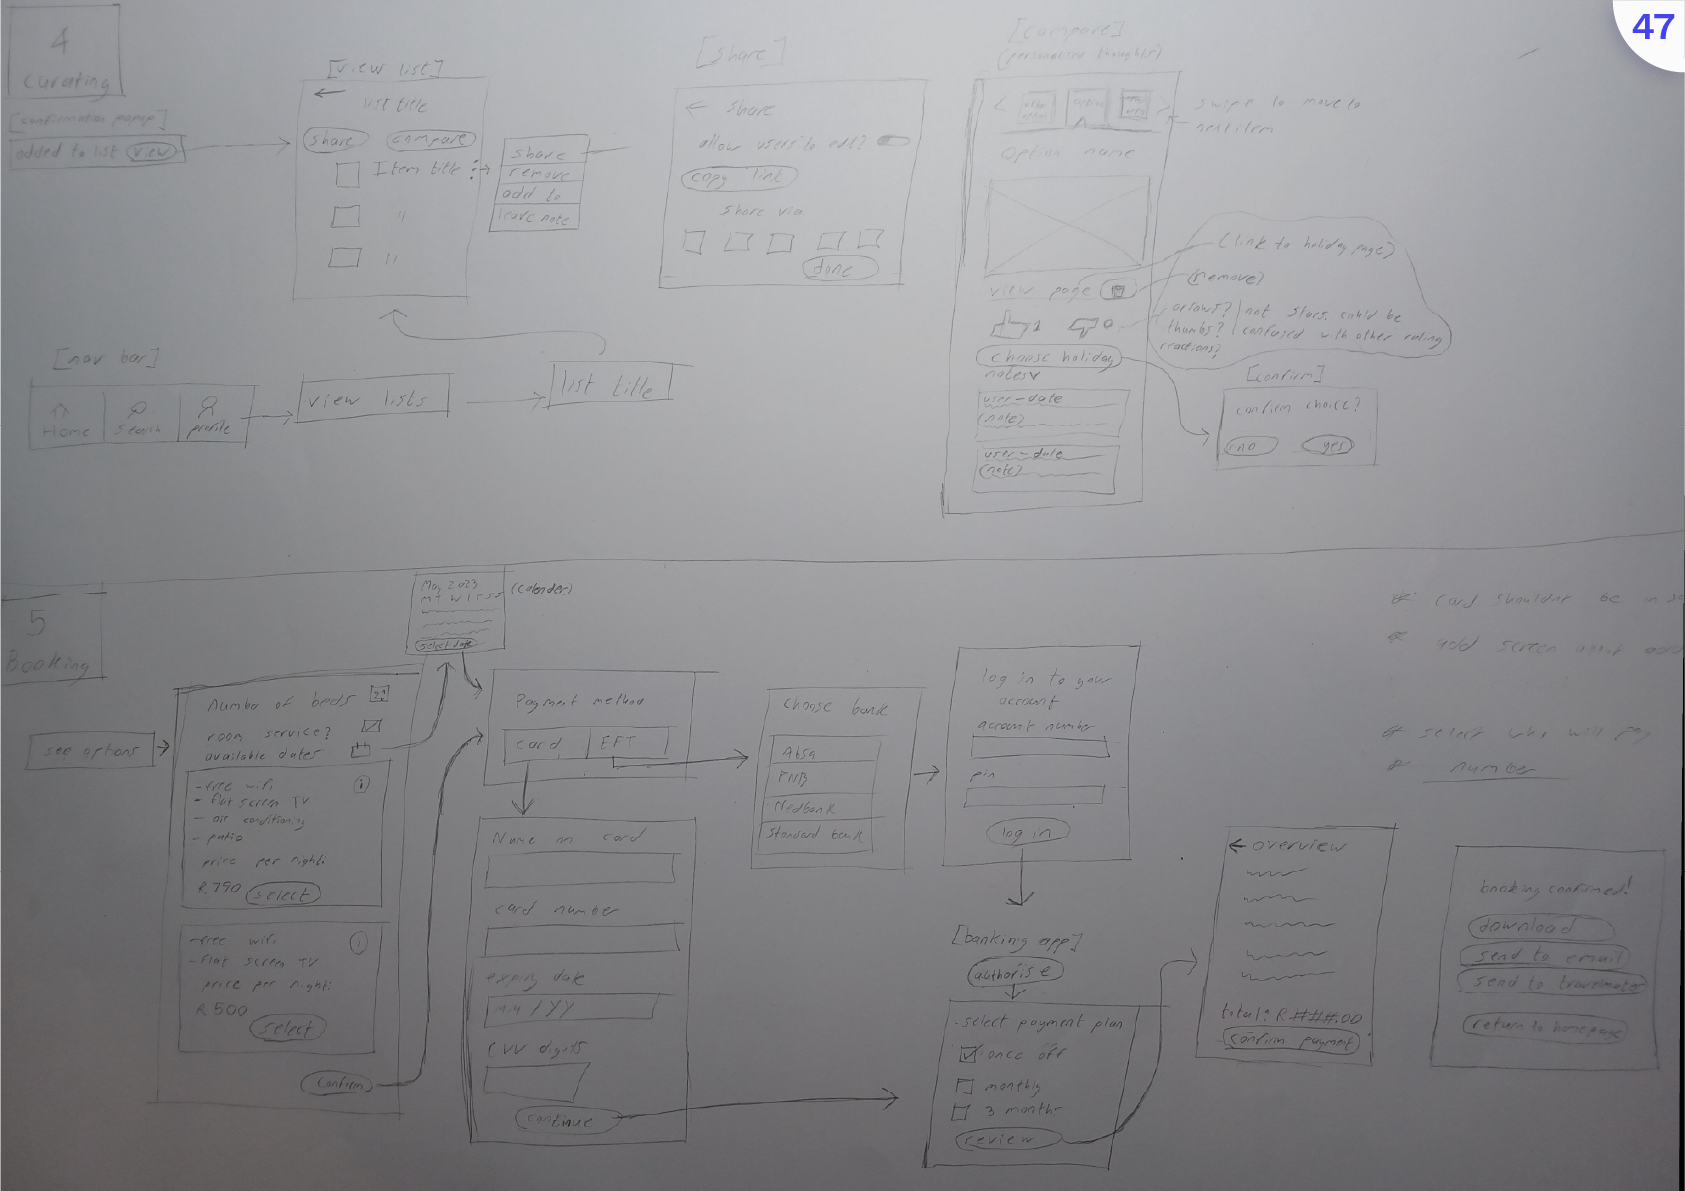 47
4
Curating
[confirmation popup]
added to list view
[view list]
list title
share compare
Item title
"
"
share
remove
add to
leave note
[share]
share
allow users to edit?
copy link
share via
done
[compare]
(personalised thoughts)
swipe to move to
next item
Option name
view page
(link to holiday page)
(remove)
1 0
arrows?
thumbs?
reactions?
not stars, could be
confused with other rating
choose holiday
notes
user - date
(note)
user - date
(note)
[confirm]
confirm choice?
no yes
[nav bar]
Home
Search
profile
view lists
list title
5
Booking
May 2023
M T W T F S S
select date
(calender)
see options
Number of beds
room service?
available dates
- free wifi
- flat screen TV
- air conditioning
- patio
price per night:
R 790 select
- free wifi
- flat screen TV
price per night:
R 500
select
Confirm
Payment method
card EFT
Name on card
card number
expiry date
MM / YY
CVV digits
continue
Choose bank
Absa
FNB
Nedbank
Standard bank
log in to your
account
account number
pin
log in
[banking app]
authorise
- select payment plan
once off
monthly
3 months
review
overview
total: R ###.00
confirm payment
booking confirmed!
download
send to email
send to travelmates
return to homepage
card shouldnt be in
add screen about
select who will pay
number